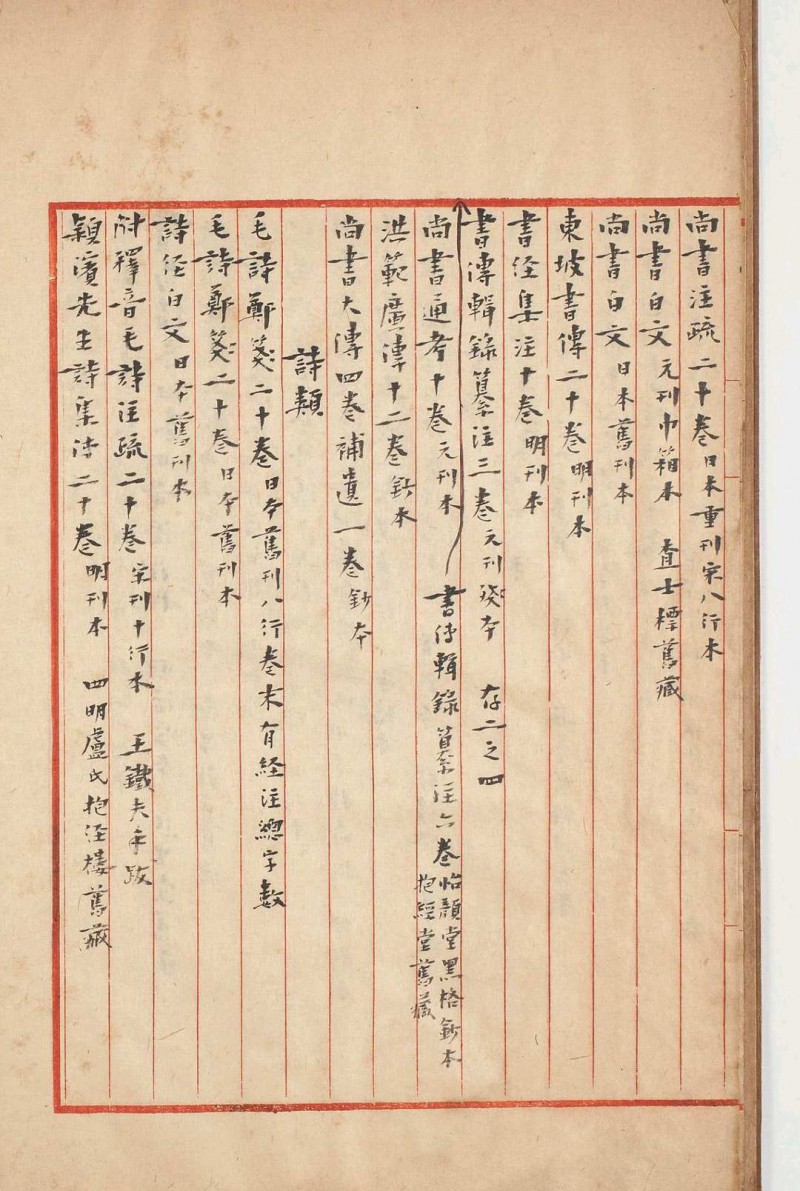 尚書注疏二十卷日本重刊宋八行本
尚書白文元刊巾箱本 查士標舊藏
尚書白文日本舊刊本
東坡書傳二十卷明刊本
書径集注十卷明刊本
書傳輯錄纂注三卷元刊殘本 存二之四
尚書通考十卷元刊本 書傳輯錄纂注六卷怡顏堂黑格鈔本
抱經堂舊藏
洪範廣傳十二卷鈔本
尚書大傳四卷補遺一卷鈔本
詩類
毛詩鄭箋二十卷日本舊刊八行卷末有経注總字數
毛詩鄭箋二十卷日本舊刊本
詩径白文日本舊刊本
附釋音毛詩注疏二十卷宋刊十行本 王鐵夫手跋
潁濱先生詩集傳二十卷明刊本 四明盧氏抱經樓舊藏